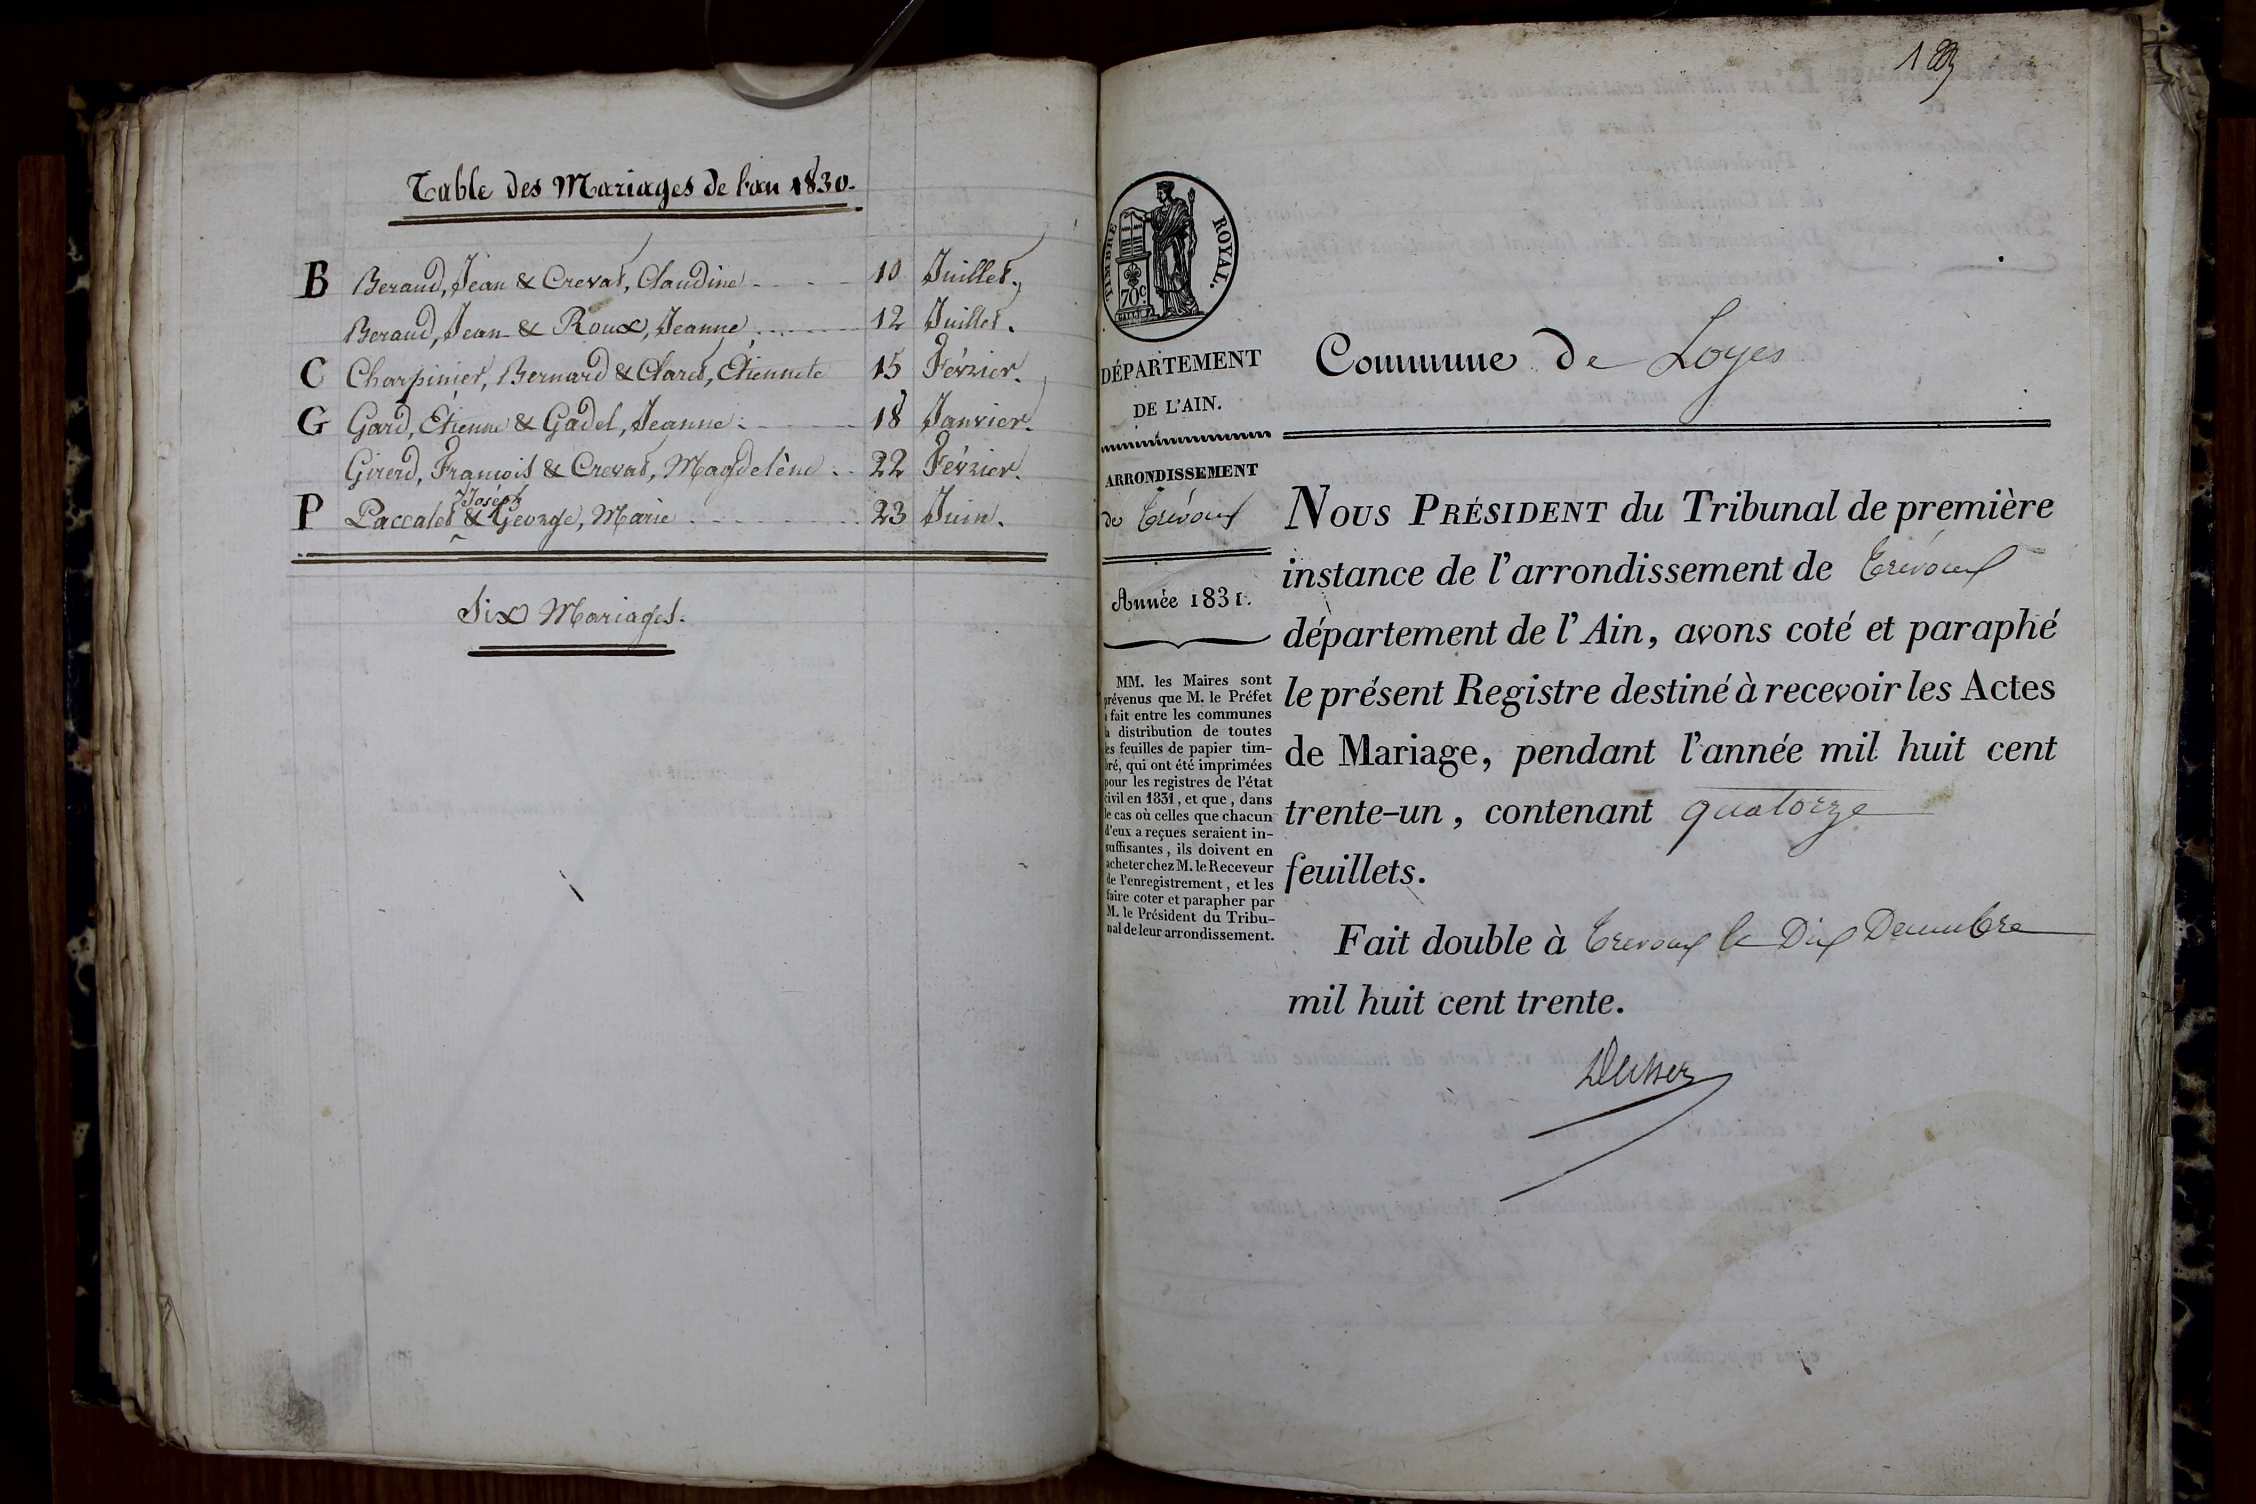 Table des Mariages de l'an 1830.
B Beraud, Jean & Crevat, Claudine 10 Juillet.
Beraud, Jean & Roux, Jeanne 12 Juillet.
C Charpinier, Bernard & Claret, Etiennete 15 Février.
G Gard, Etienne & Gadel, Jeanne 18 Janvier.
Girerd, François & Crevat, Magdelène 22 Février.
Joseph
P Paccalet & George, Marie 23 Juin.
Six Mariages.
TIMBRE ROYAL.
70c
DÉPARTEMENT
DE L'AIN.
ARRONDISSEMENT
de Trévoux
Année 1831.
MM. les Maires sont
prévenus que M. le Préfet
a fait entre les communes
la distribution de toutes
les feuilles de papier tim-
bré, qui ont été imprimées
pour les registres de l'état
civil en 1831, et que, dans
le cas où celles que chacun
d'eux a reçues seraient in-
suffisantes, ils doivent en
acheter chez M. le Receveur
de l'enregistrement, et les
faire coter et parapher par
M. le Président du Tribu-
nal de leur arrondissement.
Commune de Loyes
NOUS PRÉSIDENT du Tribunal de première
instance de l'arrondissement de Trévoux
département de l'Ain, avons coté et paraphé
le présent Registre destiné à recevoir les Actes
de Mariage, pendant l'année mil huit cent
trente-un, contenant quatorze
feuillets.
Fait double à Trevoux le Dix Decembre
mil huit cent trente.